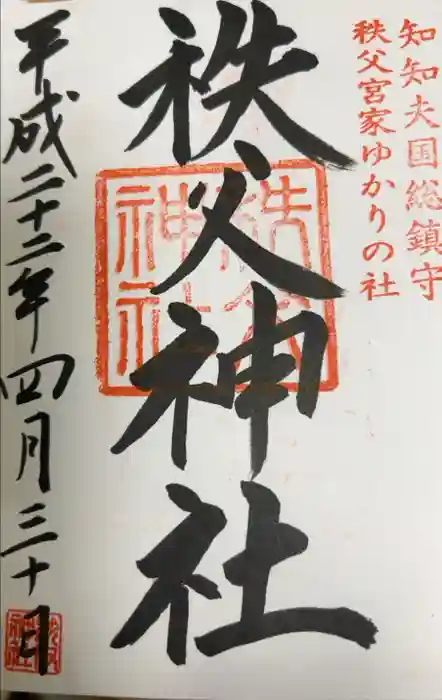 知知夫国総鎮守
秩父宮家ゆかりの社
秩父神社
秩父神社
平成二十二年四月三十日